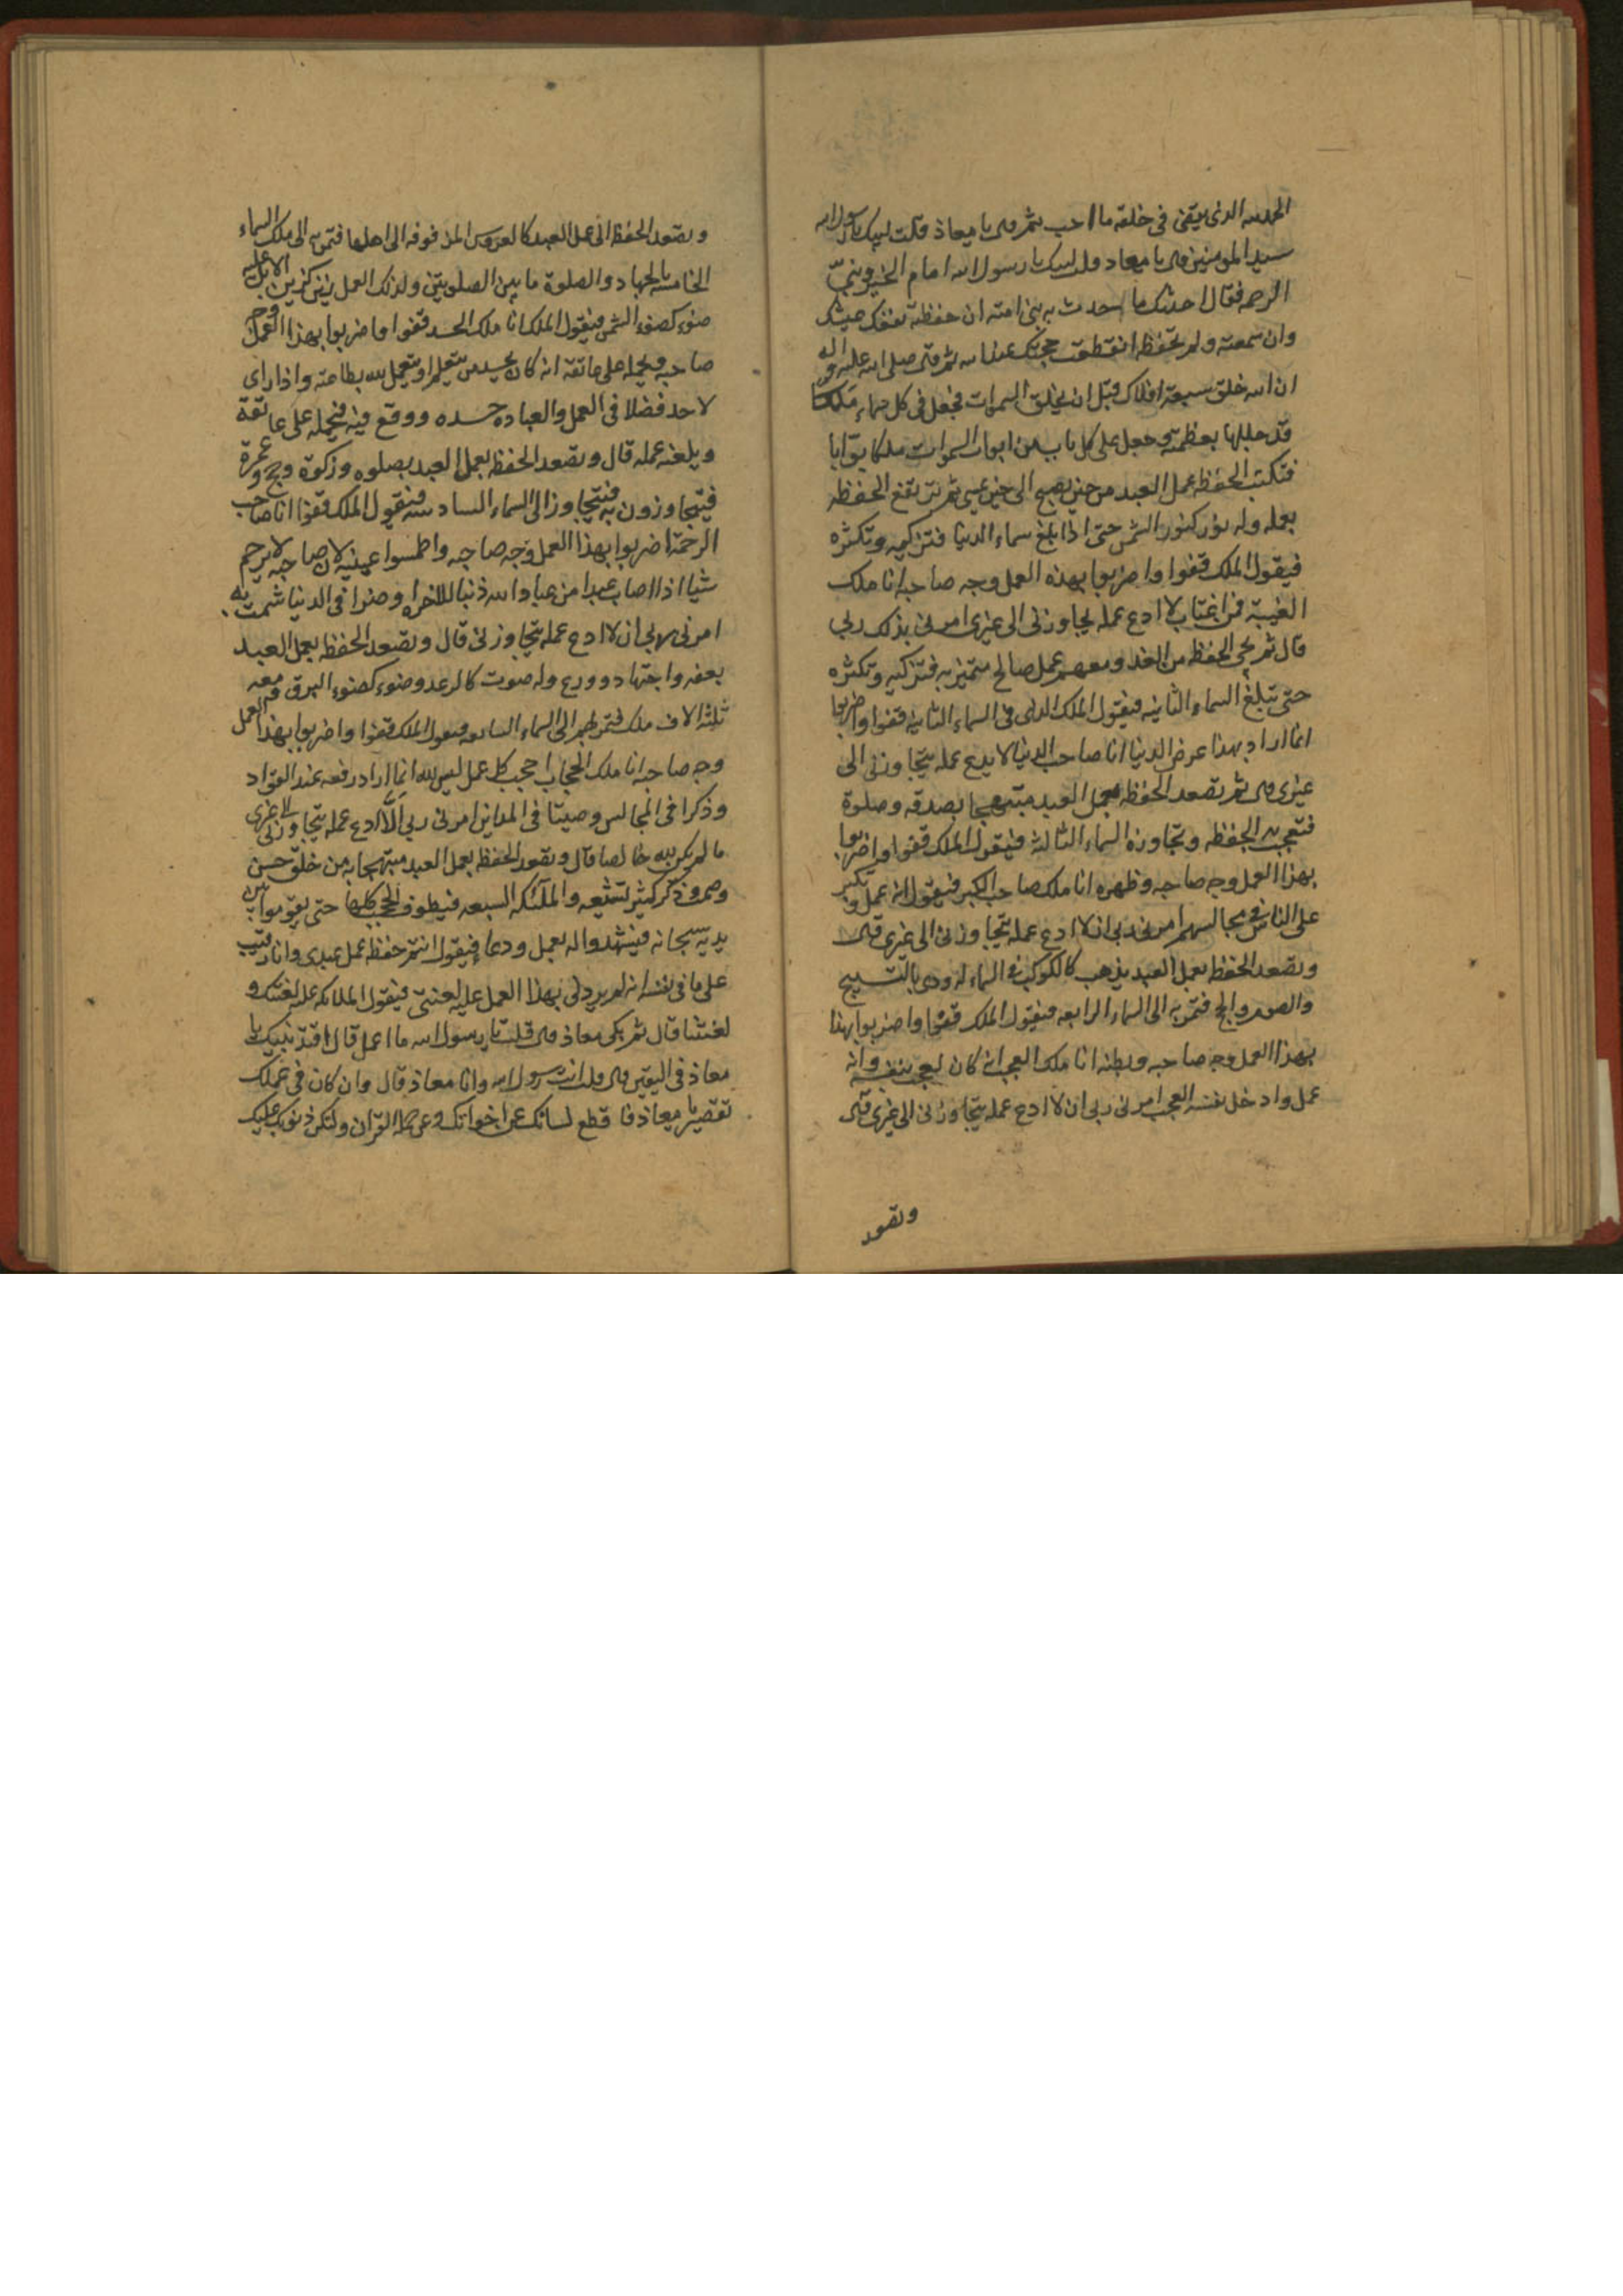 الحمد لله الذى يقضى فى خلقه ما احب ثم قال يا معاذ قلت لبيك يا رسول الله
سيد المومنين قال يا معاد قلت لبيك يا رسول الله امام الخير ونبىّ
الرحمه فقال احدثك ما حدث به نبى امته ان حفظته نفعك عيشك
وان سمعته ولم تحفظه انقطعت حجتك عند الله ثم قال صلى الله عليه واله
ان الله خلق سبعة افلاك قبل ان يخلق السموات فجعل فى كل سماء ملكا
قد جللها بعظمته وجعل على كل باب من ابواب السموات ملكا بوّابا
فتكتب الحفظه عمل العبد من حين يصبح الى حين يمسى ثم ترتفع الحفظه
بعمله وله نور كنور الشمس حتى اذا بلغ سماء الدنيا فتزكيه وتكثره
فيقول الملك قفوا واضربوا بهذه العمل وجه صاحبه انا ملك
الغيبة فمن اغتاب لا ادع عمله يجاوزنى الى غيرى امرنى بذلك ربى
قال ثم تجى الحفظه من الغد ومعهم عمل صالح فتمر به فتزكيه وتكثره
حتى تبلغ السماء الثانيه فيقول الملك الذى فى السماء الثانيه قفوا واضربوا
انما اراد بهذا عرض الدنيا انا صاحب الدنيا لا يدع عمله يتجاوزنى الى
غيرى قال ثم تصعد الحفظه بعمل العبد مبتهجا بصدقه وصلوة
فتعجب به الحفظه وتجاوزه السماء الثالثه فيقول الملك قفوا واضربوا
بهذا العمل وجه صاحبه وظهره انا ملك صاحب الكبر فيقول انه عمل وتكبر
على الناس فى مجالسهم امرنى ربى ان لا ادع عمله يتجاوزنى الى غيرى قال
وتصعد الحفظه بعمل العبد يزهر كالكوكب فى السماء له دوى بالتسبيح
والصوم والحج فتمر به الى السماء الرابعه فيقول الملك قفوا واضربوا بهذا
بهذا العمل وجه صاحبه وبطنه انا ملك العجب انه كان يعجب بنفسه وانه
عمل وادخل نفسه العجب امرنى ربى ان لا ادع عمله يتجاوزنى الى غيرى قال
وتصعد
وتصعد الحفظه الى عمل العبد كالعروس المزفوفه الى اهلها فتمر به الى ملك السماء
الخامسه بالجهاد والصلوة ما بين الصلوتين ولذلك العمل رنين كرنين الابل عليه
ضوء كضوء الشمس فيقول الملك انا ملك الحسد قفوا واضربوا بهذا العمل وجه
صاحبه ويحمله على عاتقه انه كان يحسد من يتعلم او يعمل لله بطاعته واذا راى
لاحد فضلا فى العمل والعباده حسده ووقع فيه فيحمله على عاتقه
ويلعنه عمله قال وتصعد الحفظه بعمل العبد بصلوه وزكوة وحج وعمرة
فيتجاوزون به فيتجاوز الى السماء السادسه فيقول الملك قفوا انا صاحب
الرحمة اضربوا بهذا العمل وجه صاحبه واطمسوا عينيه لان صاحبه لا يرحم
شيا اذا اصاب عبدا من عباد الله ذنبا للاخره او ضرا فى الدنيا شمت به
امرنى به ربى ان لا ادع عمله يتجاوزنى قال وتصعد الحفظه بعمل العبد
بعفه واجتهاد وورع وله صوت كالرعد وضوء كضوء البرق ومعه
ثلثة الاف ملك فتمر بهم الى السماء السابعه فيقول الملك قفوا واضربوا بهذا العمل
وجه صاحبه انا ملك الحجاب احجب كل عمل ليس لله انما اراد رفعه عند القوّاد
وذكرا فى المجالس وصيتا فى المداين امرنى ربى الّا ادع عمله يتجاوزنى الى غيرى
ما لم يكن لله خالصا قال وتصعد الحفظه بعمل العبد مبتهجا به من خلق حسن
وصمت وذكر كثير تشيعه والملآئكه السبعه فيطوف الحجب كلها حتى يقوموا بين
يديه سبحانه فيشهدوا له بعمل ودعاء فيقول انتم حفظه عمل عبدى وانا رقيب
على ما فى نفسه انه لم يردنى بهذا العمل عليه لعنتى فيقول الملائكه عليه لعنتك و
لعنتنا قال ثم بكى معاذ قال قلت يا رسول الله ما اعمل قال اقتد بنبيك يا
معاذ فى اليقين قال قلت انت رسول الله وانا معاذ قال وان كان فى عملك
تقصير يا معاذ فاقطع لسانك عن اخوانك وعن حملة القران ولتكن ذنوبك عليك